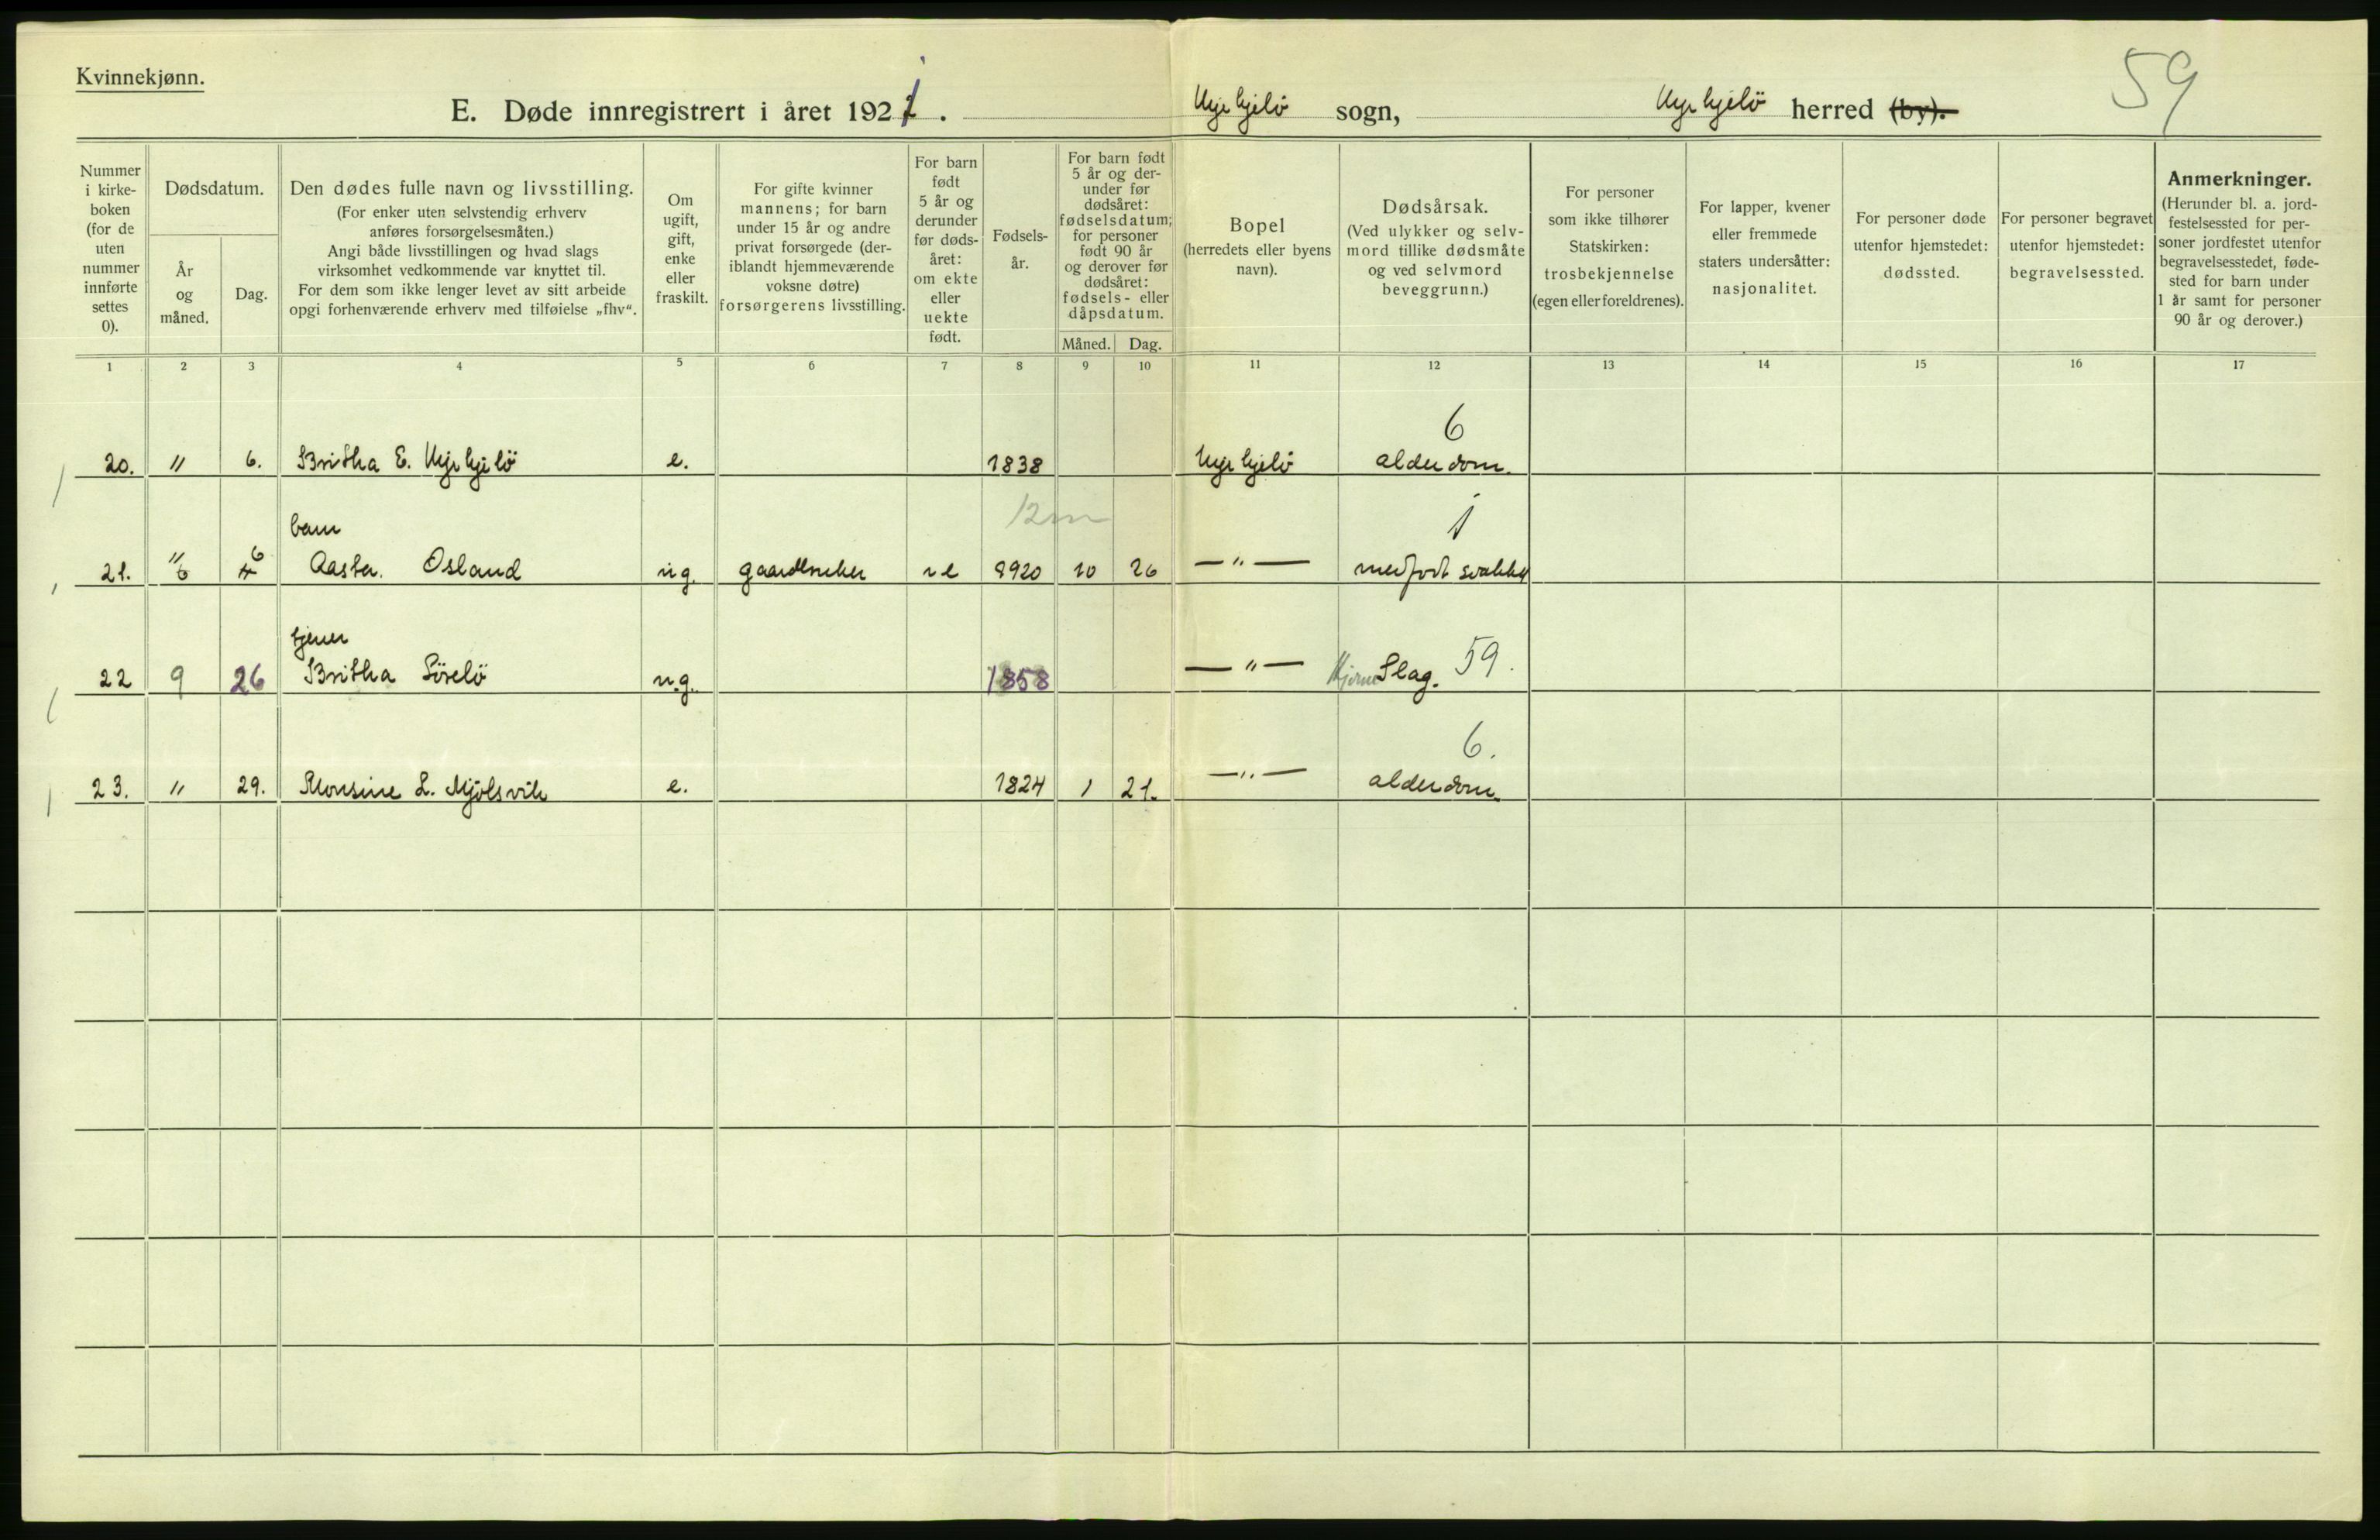 Kvinnekjønn.
59
E. Døde innregistrert i året 1921. Kyrkjebö sogn, Kyrkjebö herred (by).
Nummer
i kirke-
boken
(for de
uten
nummer
innførte
settes
0).
Dødsdatum.
År
og
måned.
Dag.
Den dødes fulle navn og livsstilling.
(For enker uten selvstendig erhverv
anføres forsørgelsesmåten.)
Angi både livsstillingen og hvad slags
virksomhet vedkommende var knyttet til.
For dem som ikke lenger levet av sitt arbeide
opgi forhenværende erhverv med tilføielse „fhv“.
Om
ugift,
gift,
enke
eller
fraskilt.
For gifte kvinner
mannens; for barn
under 15 år og andre
privat forsørgede (der-
iblandt hjemmeværende
voksne døtre)
forsørgerens livsstilling.
For barn
født
5 år og
derunder
før døds-
året:
om ekte
eller
uekte
født.
Fødsels-
år.
For barn født
5 år og der-
under før
dødsåret:
fødselsdatum;
for personer
født 90 år
og derover før
dødsåret:
fødsels- eller
dåpsdatum.
Måned. Dag.
Bopel
(herredets eller byens
navn).
Dødsårsak.
(Ved ulykker og selv-
mord tillike dødsmåte
og ved selvmord
beveggrunn.)
For personer
som ikke tilhører
Statskirken:
trosbekjennelse
(egen eller foreldrenes).
For lapper, kvener
eller fremmede
staters undersåtter:
nasjonalitet.
For personer døde
utenfor hjemstedet:
dødssted.
For personer begravet
utenfor hjemstedet:
begravelsessted.
Anmerkninger.
(Herunder bl. a. jord-
festelsessted for per-
soner jordfestet utenfor
begravelsesstedet, føde-
sted for barn under
1 år samt for personer
90 år og derover.)
1 2 3 4 5 6 7 8 9 10 11 12 13 14 15 16 17
6
20. " 6. Britha E. Kyrkjebö e. 1838 Kyrkjebö alderdom.
12m 1
barn
21. " 6 Aasta Osland ug. gaardbruker e 1920 10 26 —"— medfødt svakhet
tjener
22 9 26 Britha Sörebö ug. 1858 —"— Hjerne Slag. 59.
6.
23. " 29. Monsine L. Mjölsvik e. 1824 1 21. —"— alderdom.